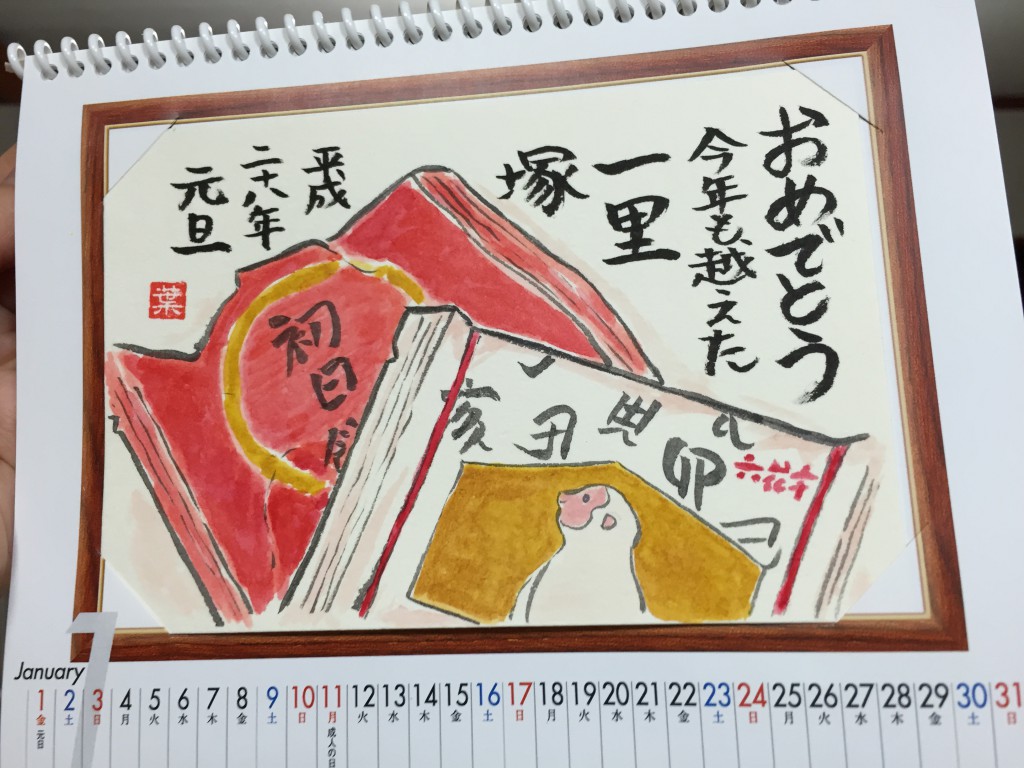 おめでとう
今年も越えた
一里
塚
平成
二十八年
元旦
葉
初日
亥丑
卯
January
1 2 3 4 5 6 7 8 9 10 11 12 13 14 15 16 17 18 19 20 21 22 23 24 25 26 27 28 29 30 31
金 土 日 月 火 水 木 金 土 日 月 火 水 木 金 土 日 月 火 水 木 金 土 日 月 火 水 木 金 土 日
元日
成人の日